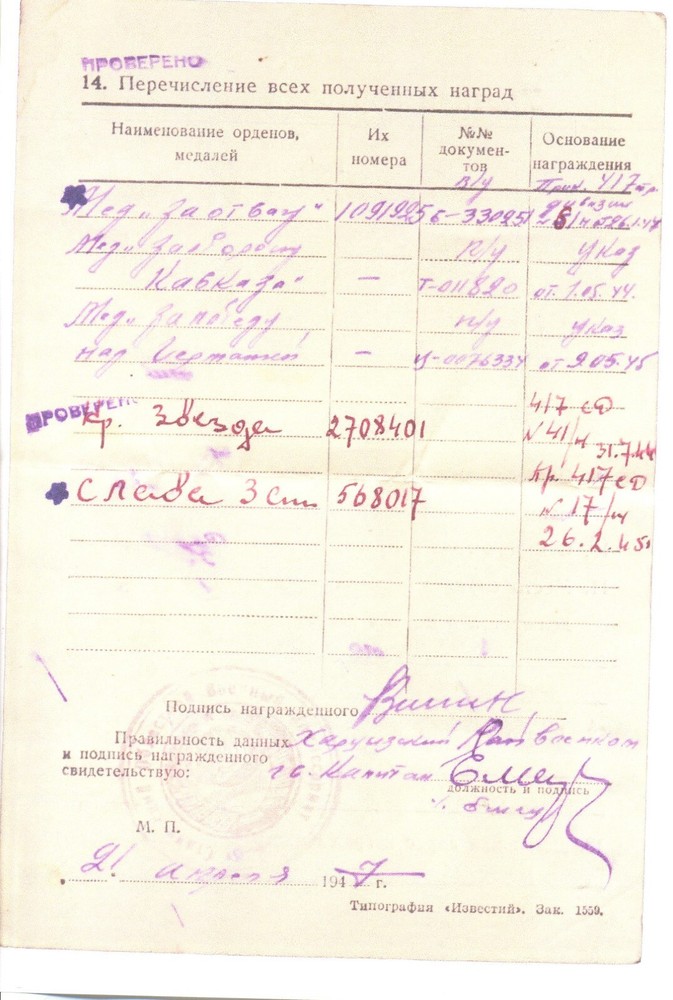 ПРОВЕРЕНО
14. Перечисление всех полученных наград
Наименование орденов, медалей
Их номера
№№ документов
Основание награждения
Мед „За отвагу" 1091925 Б-330251 в/у Прик. 417 стр. дивизии
Мед „За оборону п/у указ
Кавказа" — Т-011820 от 1.05.44.
Мед „За победу п/у указ
над Германией — Ц-0076334 от 9.05.45
ПРОВЕРЕНО
Кр. Звезда 2708401 417 сд N 41/н 31.7.44
Слава 3 ст 568017 Пр. 417 сд
N 17/н
26.2.45
Подпись награжденного
Правильность данных Харцызский Райвоенком
и подпись награжденного
свидетельствую: г.с. Капитан
должность и подпись
М. П.
21 апреля 1947 г.
Типография «Известий». Зак. 1559.